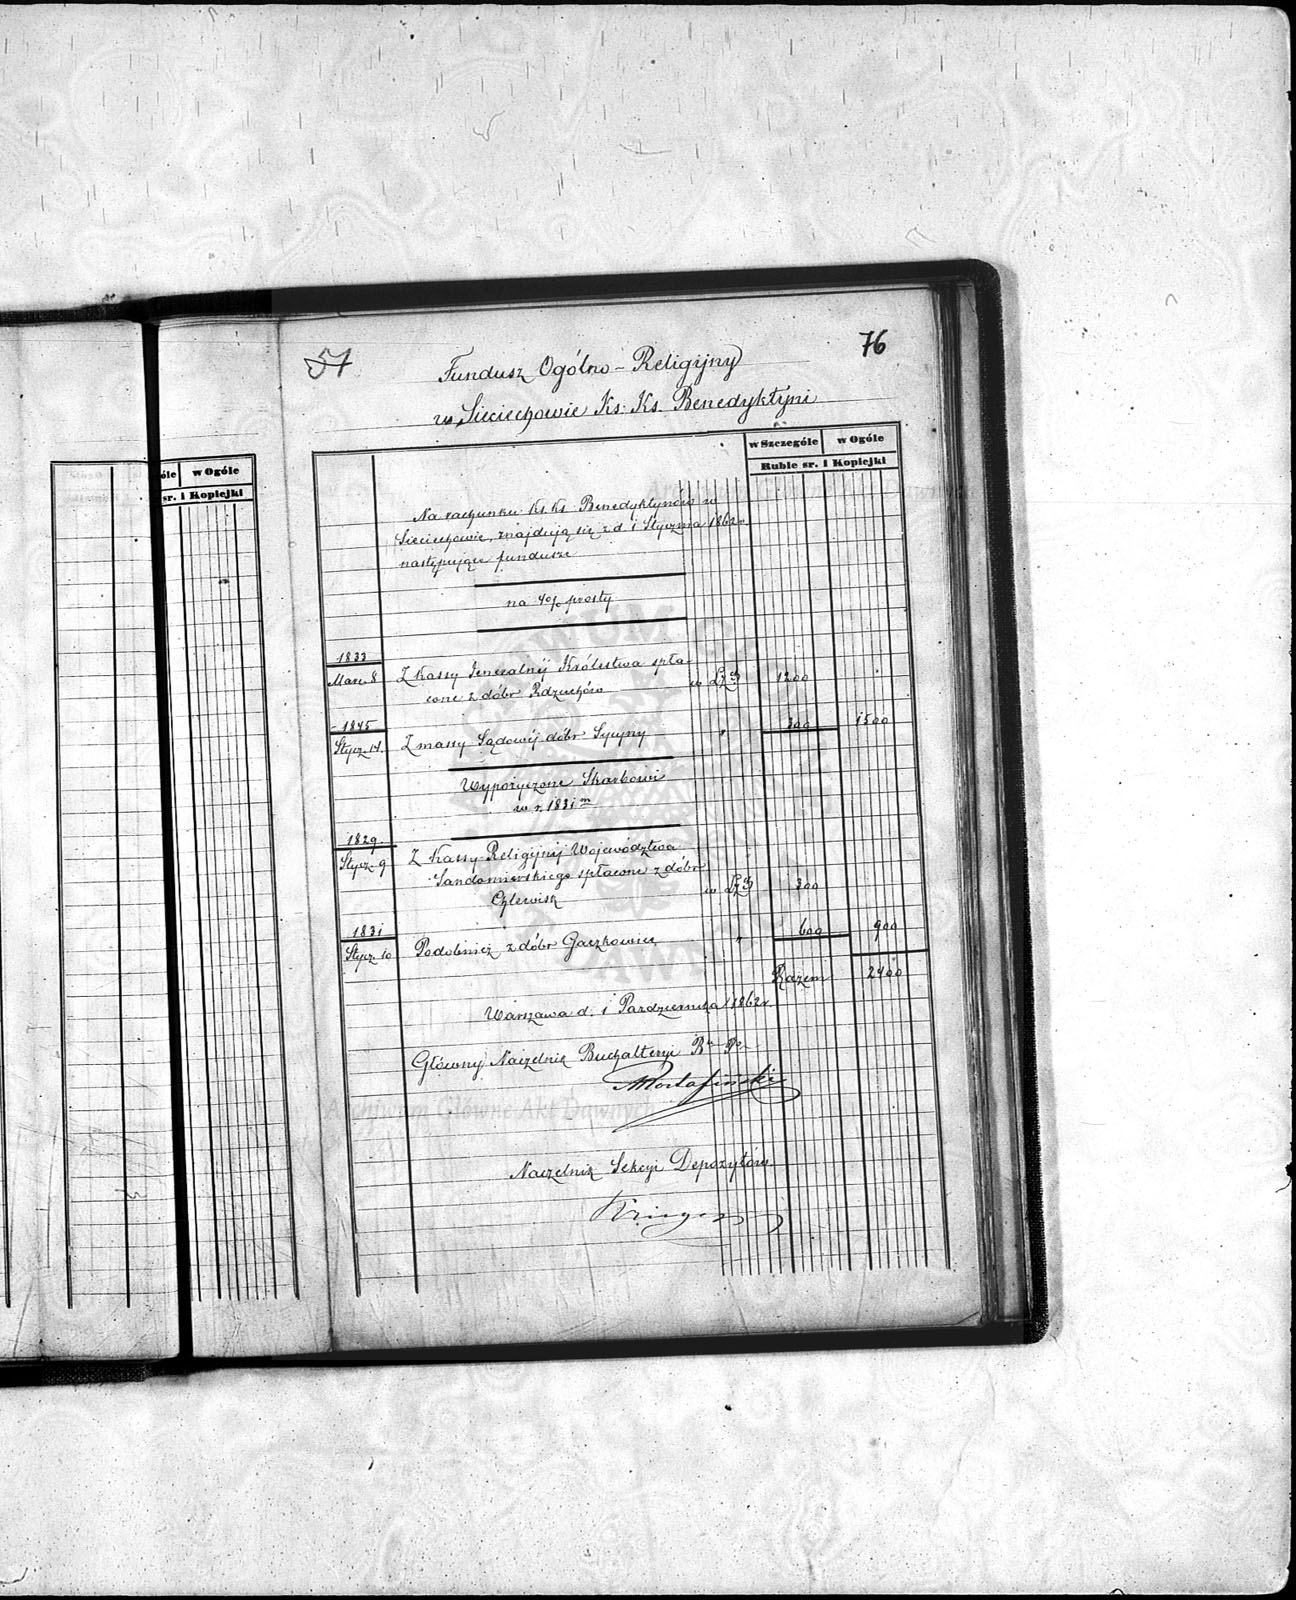 w Ogóle
sr. i Kopiejki
57
76
Fundusz Ogólno-Religijny
w Sieciechowie Ks. Ks. Benedyktyni
w Szczególe w Ogóle
Ruble sr. i Kopiejki
Na rachunku Ks. Ks. Benedyktynów w
Sieciechowie, znajdują się z d. 1 Stycznia 1862 r.
następujące fundusze
na 4% prosty
1833
Marc. 8 Z Kassy Jeneralnéj Królestwa spła-
cone z dóbr Rdzuchów w 1200
1845
Stycz. 14. Z massy Sądowéj dóbr Sycyny " 300 1500
Wypożyczone Skarbowi
w r. 1831 m
1829
Stycz. 9 Z Kassy Religijnéj Województwa
Sandomierskiego spłacone z dóbr
Chlewisk w 300
1831
Stycz. 10 Podobnież z dóbr Gaczkowice " 600 900
Razem 2400
Warszawa d. 1 Pazdziernika 1862 r.
Główny Naczelnik Buchalteryi
Naczelnik Sekcyi Depozytów
Archiwum Główne Akt Dawnych